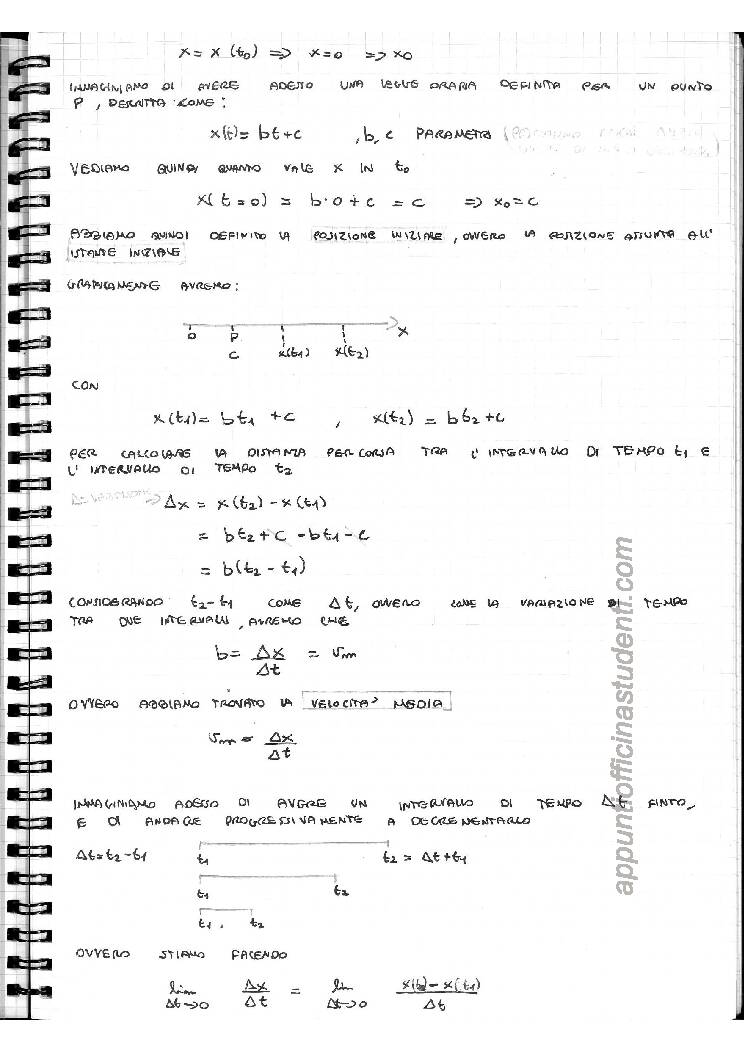 x = x (t0) => x=0 => x0
IMMAGINIAMO DI AVERE ADESSO UNA LEGGE ORARIA DEFINITA PER UN PUNTO
P, DESCRITTA COME:
x(t) = bt + c , b, c PARAMETRI
VEDIAMO QUINDI QUANTO VALE X IN t0
x( t = 0) = b·0 + c = c => x0 = c
ABBIAMO QUINDI DEFINITO LA POSIZIONE INIZIALE, OVVERO LA POSIZIONE ASSUNTA ALL'
ISTANTE INIZIALE
GRAFICAMENTE AVREMO:
O P x(t1) x(t2) x
C
CON
x(t1) = bt1 + c , x(t2) = bt2 + c
PER CALCOLARE LA DISTANZA PERCORSA TRA L'INTERVALLO DI TEMPO t1 E
L'INTERVALLO DI TEMPO t2
=> Δx = x(t2) - x(t1)
= bt2 + c - bt1 - c
= b(t2 - t1)
CONSIDERANDO t2-t1 COME Δt, OVVERO COME LA VARIAZIONE DI TEMPO
TRA DUE INTERVALLI, AVREMO CHE
b = Δx/Δt = vm
OVVERO ABBIAMO TROVATO LA VELOCITA' MEDIA
vm = Δx/Δt
IMMAGINIAMO ADESSO DI AVERE UN INTERVALLO DI TEMPO Δt FINITO,
E DI ANDARE PROGRESSIVAMENTE A DECREMENTARLO
Δt = t2 - t1 t1 t2 = Δt + t1
t1 t2
t1 t2
OVVERO STIAMO FACENDO
lim Δt→0 Δx/Δt = lim Δt→0 x(t2) - x(t1)/Δt
appuntiofficinastudenti.com